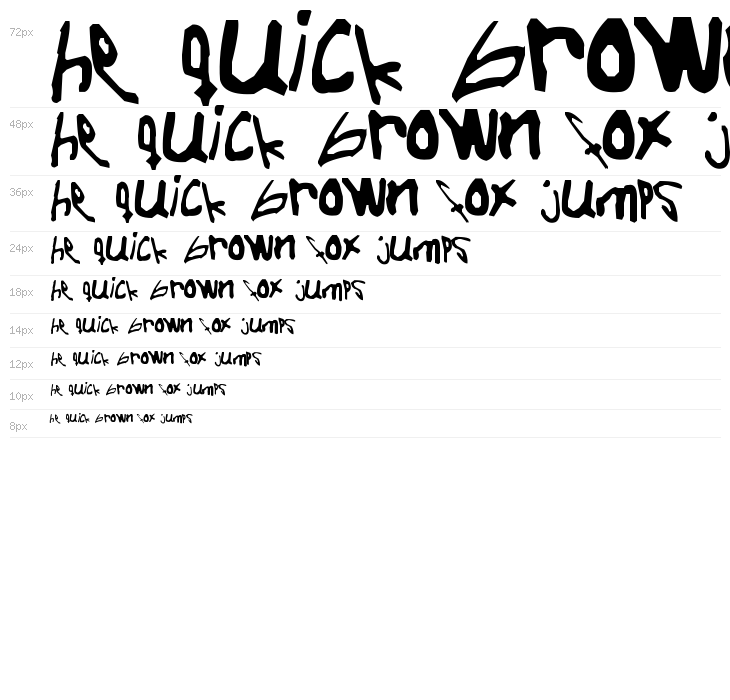 72px he quick brow
48px he quick brown fox j
36px he quick brown fox jumps
24px he quick brown fox jumps
18px he quick brown fox jumps
14px he quick brown fox jumps
12px he quick brown fox jumps
10px he quick brown fox jumps
8px he quick brown fox jumps